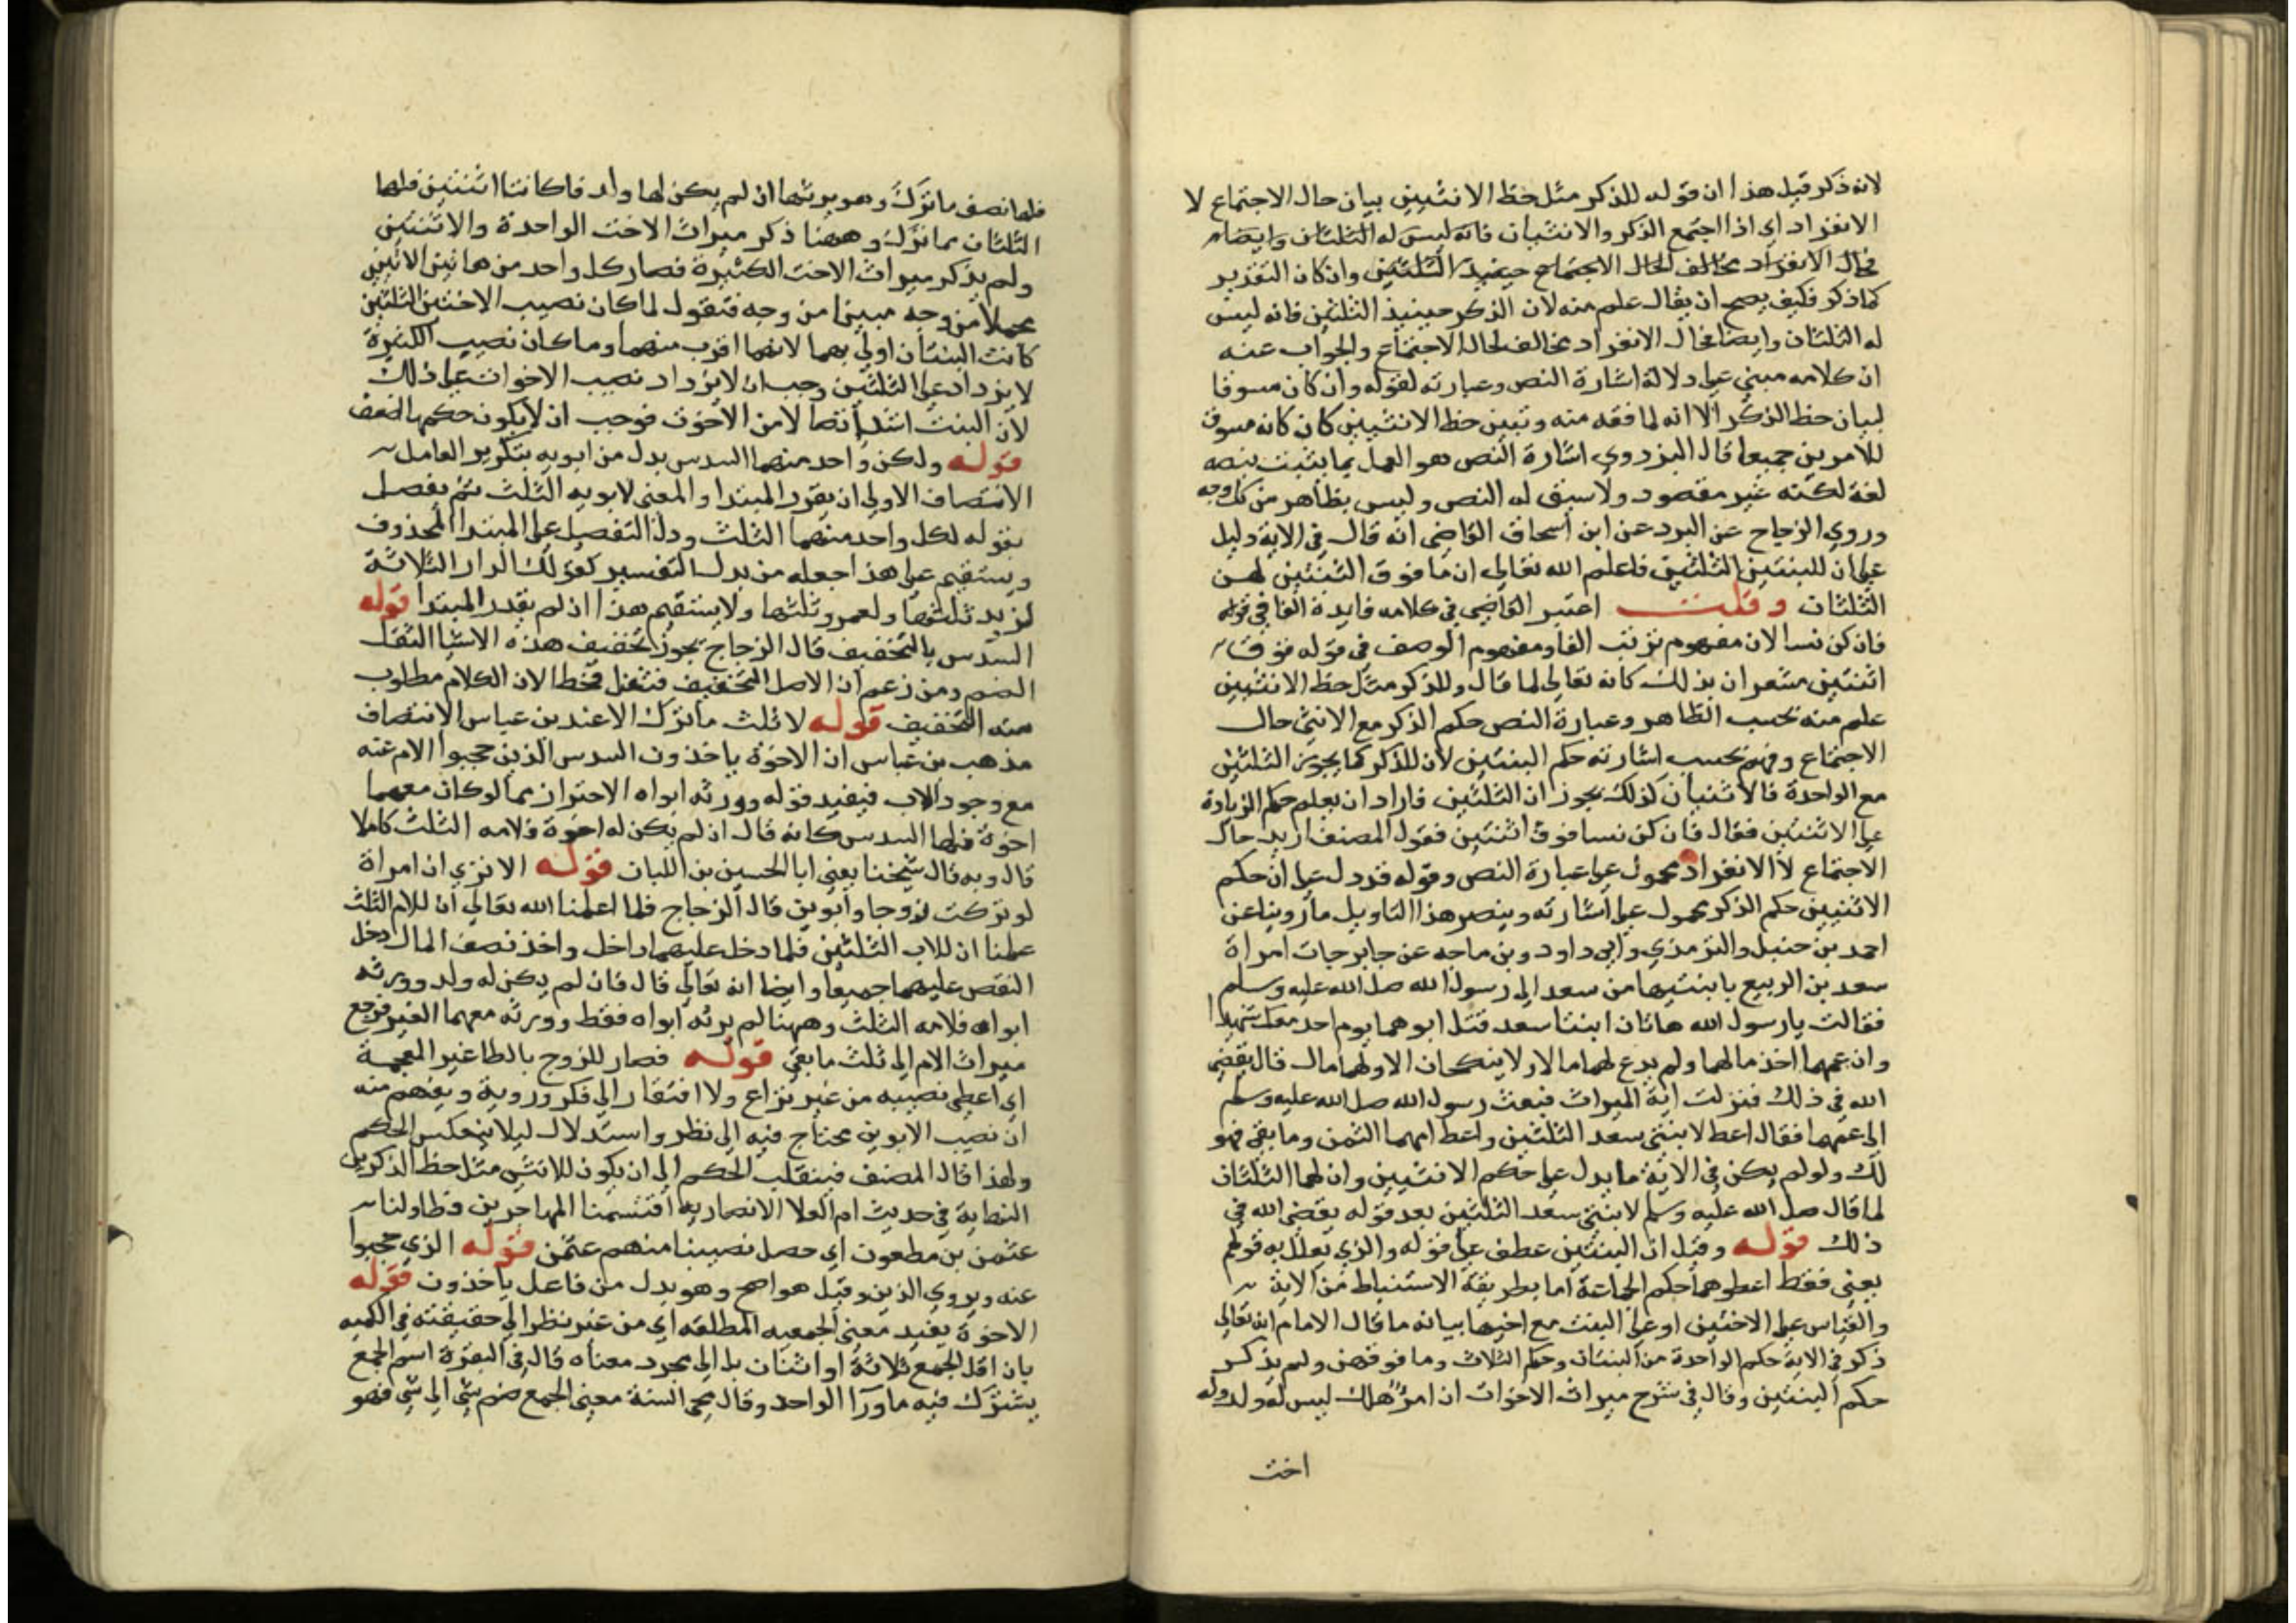 لانه ذكر قبل هذا ان قوله للذكر مثل حظ الانثيين بيان حال الاجتماع لا
الانفراد اي اذا اجتمع الذكر والانثيان فانه ليس له الثلثان وايضا
فحال الانفراد مخالف لحال الاجتماع حينيذ الثلثين وان كان التقدير
كما ذكر فكيف يصح ان يقال علم منه لان الذكر حينيذ الثلثين فانه ليس
له الثلثان وايضا فحال الانفراد مخالف لحال الاجتماع والجواب عنه
ان كلامه مبني على دلالة اشارة النص وعبارته لقوله وان كان مسوقا
لبيان حظ الذكر الا انه لما فقه منه وتبين حظ الانثيين كان كانه مسوق
للامرين جميعا قال البزدوي اشارة النص هو العمل بما يثبت بنصه
لغة لكنه غير مقصود ولا سيق له النص وليس بظاهر من كل وجه
وروي الزجاج عن البرد عن ابن اسحاق القاضى انه قال في الاية دليل
على ان للبنتين الثلثين فاعلم الله تعالى ان ما فوق الثنتين لهن
الثلثان وقلت اعتبر القاضى في كلامه فايدة الفا في قوله
فان كن نسا لان مفهوم ترتب الفا ومفهوم الوصف في قوله فوق
اثنتين مشعر ان بذلك كانه تعالى لما قال وللذكر مثل حظ الانثيين
علم منه بحسب الظاهر وعبارة النص حكم الذكر مع الانثى حال
الاجتماع وفهم بحسب اشارته حكم البنتين لان للذكر كما يجوز الثلثين
مع الواحدة فالانثيان كذلك يجوزان الثلثين فاراد ان يعلم حكم الزيادة
على الاثنتين فقال فان كن نسا فوق اثنتين فقول المصنف اريد حال
الاجتماع لا الانفراد محمول على عبارة النص وقوله قد دل على ان حكم
الانثيين حكم الذكر محمول على اشارته وينصر هذا التاويل ما روينا عن
احمد بن حنبل والترمذي وابي داود وبن ماجه عن جابر جات امراة
سعد بن الربيع بابنتيها من سعد الى رسول الله صلى الله عليه وسلم
فقالت يا رسول الله هاتان ابنتا سعد قتل ابوهما يوم احد معك شهيدا
وان عمهما اخذ مالهما ولم يدع لهما مالا ولا ينكحان الا ولهما مال قال يقضي
الله في ذلك فنزلت اية الميراث فبعث رسول الله صلى الله عليه وسلم
الى عمهما فقال اعط لابنتي سعد الثلثين واعط امهما الثمن وما بقي فهو
لك ولو لم يكن في الاية ما يدل على حكم الانثيين وان لهما الثلثان
لما قال صلى الله عليه وسلم لابنتي سعد الثلثين بعد قوله يقضي الله في
ذلك قوله وقيل ان البنتين عطف على قوله والذي يعلل به قولهم
يعني فقط اعطوهما حكم الجماعة اما بطريقة الاستنباط من الاية
والقياس على الاختين او على البنت مع اخيها بيانه ما قال الامام انه تعالى
ذكر في الاية حكم الواحدة من البنات وحكم الثلاث وما فوقهن ولم يذكر
حكم البنتين وقال في شرح ميراث الاخوات ان امرؤ هلك ليس له ولد وله
اخت
فلها نصف ما ترك وهو يرثها ان لم يكن لها ولد فاكانتا اثنتين فلهما
الثلثان مما ترك وههنا ذكر ميراث الاخت الواحدة والاثنتين
ولم يذكر ميراث الاخت الكثيرة فصار كل واحد من هاتين الاثنين
مجملا من وجه مبينا من وجه فنقول لما كان نصيب الاختين الثلثين
كانت البنتان اولى بهما لانهما اقرب منهما وما كان نصيب الكثيرة
لا يزداد على الثلثين وجب ان لا يزداد نصيب الاخوات على ذلك
لان البنت اشد اتصالا من الاخوت فوجب ان لا يكون حكمها اضعف
قوله ولكن واحد منهما السدس بدل من ابويه بتكرير العامل
الانتصاف الاولى ان يقدر المبتدا والمعنى لابويه الثلث ثم يفصل
بقوله لكل واحد منهما الثلث ودل التفصيل على المبتدا المحذوف
ويستقيم على هذا جعله من بدل التفسير كقولك الدار الثلاثة
لزيد ثلثها ولعمرو ثلثها ولا يستقيم هذا اذ لم يقدر المبتدا قوله
السدس بالتخفيف قال الزجاج يجوز تخفيف هذه الاشيا الثقل
الضم ومن زعم ان الاصل التخفيف فتثقل فخطا لان الكلام مطلوب
منه التخفيف قوله لا ثلث ما ترك الا عند بن عباس الانتصاف
مذهب بن عباس ان الاخوة ياخذون السدس الذين حجبوا الام عنه
مع وجود الاب فيفيد قوله وورثه ابواه الاحتراز مما لو كان معهما
اخوة فلها السدس كانه قال ان لم يكن له اخوة فلامه الثلث كاملا
قال وبه قال شيخنا يعني ابا الحسين بن اللبان قوله الا تري ان امراة
لو تركت زوجا وابوين قال الزجاج فلما اعلمنا الله تعالى ان للام الثلث
علمنا ان للاب الثلثين فلما دخل عليهما داخل واخذ نصف المال دخل
النقص عليهما جميعا وايضا انه تعالى قال فان لم يكن له ولد وورثه
ابواه فلامه الثلث وههنا لم يرثه ابواه فقط وورثه معهما الغير فرجع
ميراث الام الى ثلث ما بقي قوله فصار للزوج بالطا غير المعجمة
اي اعطى نصيبه من غير نزاع ولا افتقار الى فكر وروية ويفهم منه
ان نصيب الابوين محتاج فيه الى نظر واستدلال ليلا ينعكس الحكم
ولهذا قال المصنف فينقلب الحكم الى ان يكون للانثى مثل حظ الذكرين
النهاية في حديث ام العلا الانصارية اقتسمنا المهاجرين وطاولنا
عثمن بن مطعون اي حصل نصيبنا منهم عثمن قوله الذي حجبوا
عنه ويروي الذين وقيل هو اصح وهو بدل من فاعل ياخذون قوله
الاخوة يفيد معنى الجمعيه المطلقه اي من غير نظر الى حقيقته في الكميه
بان اقل الجمع ثلاثة او اثنان بل الى مجرد معناه قال في البقرة اسم الجمع
يشترك فيه ما ورآ الواحد وقال محي السنة معنى الجمع ضم شي الى شي فهو